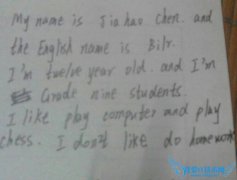 My name is Jiahao Chen. and
the English name is Bilr.
I'm twelve year old. and I'm
Grade nine students.
I like play computer and play
chess. I don't like do homework